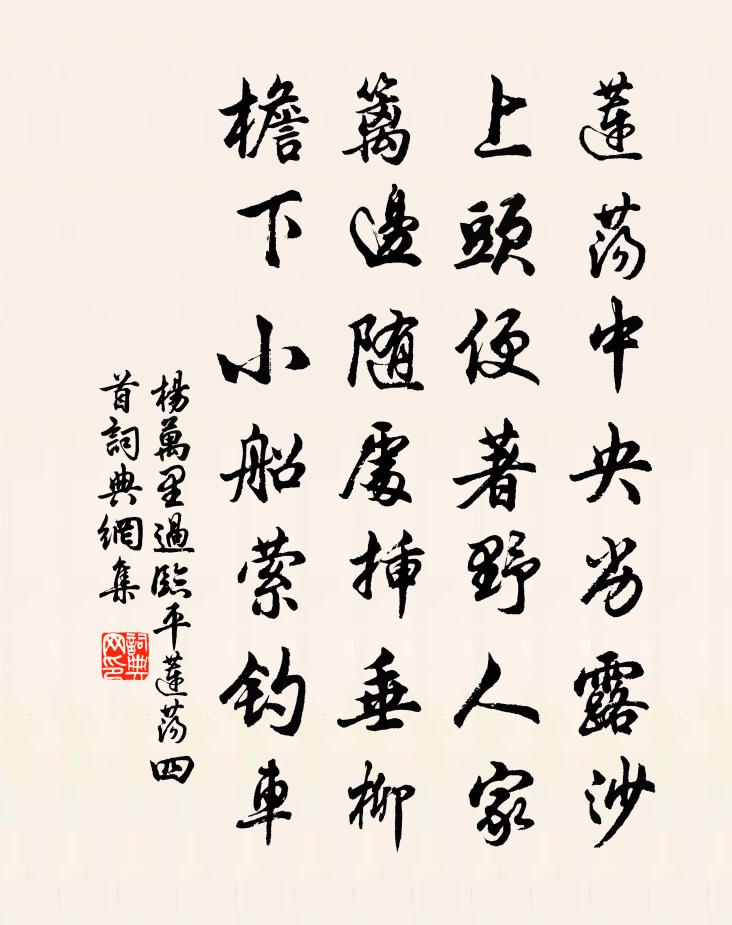 蓮蕩中央劣露沙
上頭便著野人家
籬邊随處挿垂柳
檐下小船萦釣車
楊萬里過臨平蓮蕩四
首詞典網集
詞典
网印